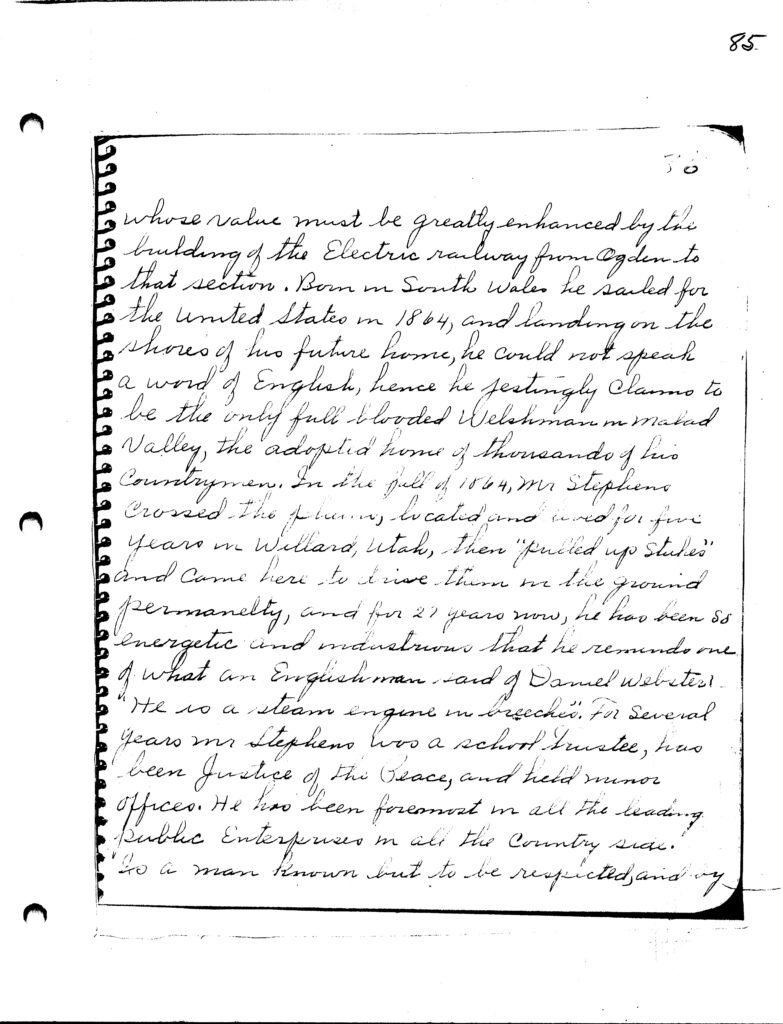 85.
36
whose value must be greatly enhanced by the
building of the Electric railway from Ogden to
that section. Born in South Wales he sailed for
the United States in 1864, and landing on the
shores of his future home, he could not speak
a word of English, hence he jestingly Claims to
be the only full blooded Welshman in Malad
Valley, the adopted home of thousands of his
Countrymen. In the fall of 1864, Mr Stephens
Crossed the plains, located and lived for five
years in Willard, Utah, then "pulled up Stakes"
and Came here to drive them in the ground
permanelty, and for 27 years now, he has been so
energetic and industrious that he reminds one
of what an Englishman said of Daniel Webster!
"He is a steam engine in breeches". For Several
years Mr Stephens was a school Trustee, has
been Justice of the Peace, and held minor
offices. He has been foremost in all the leading
public Enterprises in all the Country side.
Is a man known but to be respected, and by